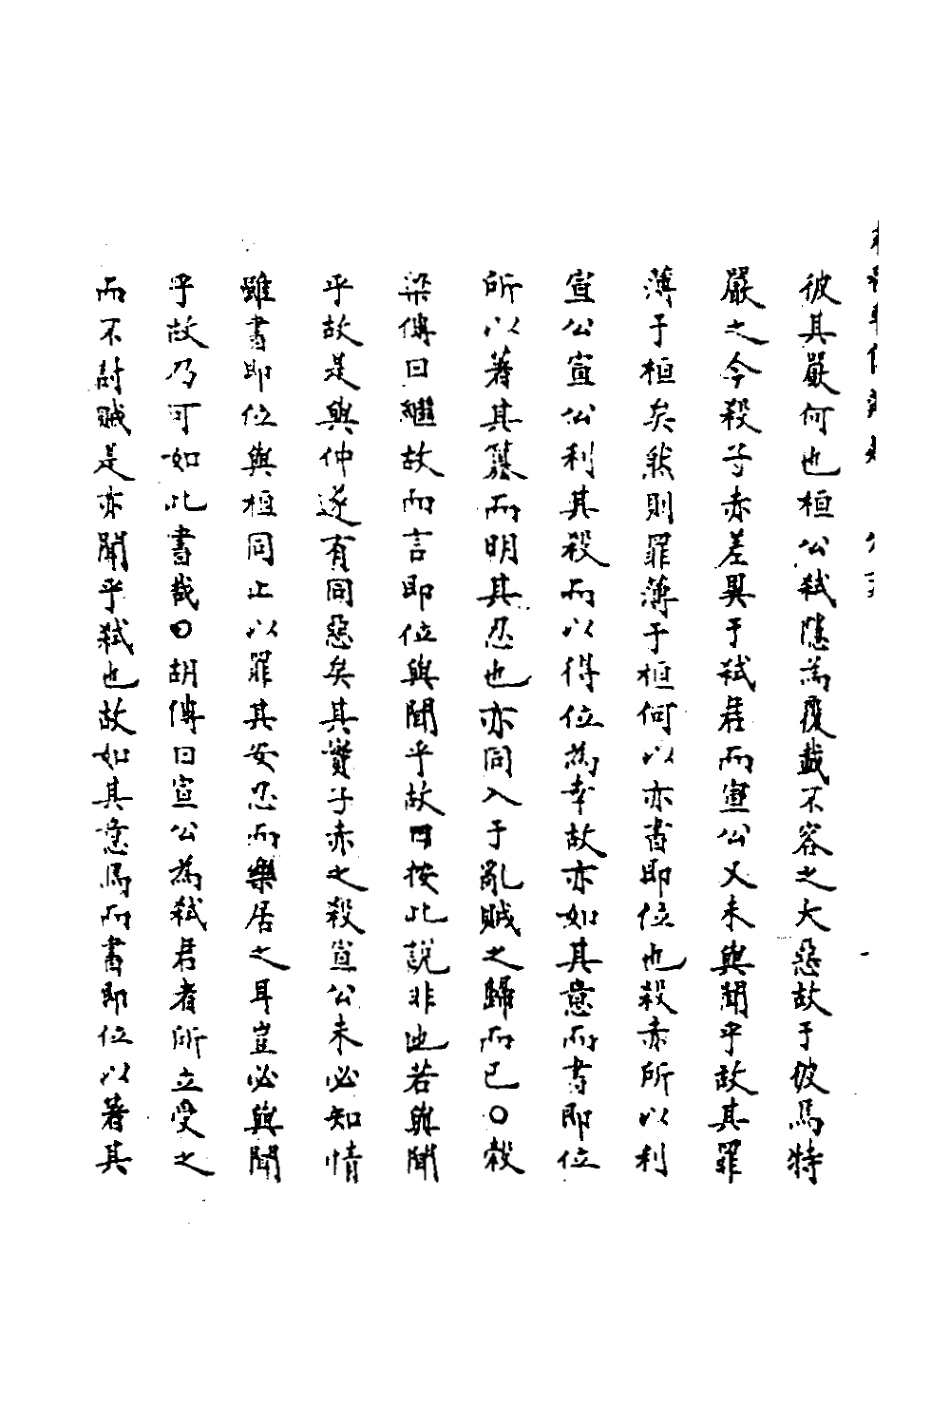 彼其嚴何也桓公弑隱為覆載不容之大惡故于彼焉特
嚴之今殺子赤差異于弑君而宣公又未與聞乎故其罪
薄于桓矣然則罪薄于桓何以亦書即位也殺赤所以利
宣公宣公利其殺而以得位為幸故亦如其意而書即位
所以著其簒而明其忍也亦同入于亂賊之歸而已○穀
梁傳曰繼故而言即位與聞乎故日按此說非也若與聞
乎故是與仲遂有同惡矣其實子赤之殺宣公未必知情
雖書即位與桓同止以罪其安忍而樂居之耳豈必與聞
乎故乃可如此書哉○胡傳曰宣公為弑君者所立受之
而不討賊是亦聞乎弑也故如其意焉而書即位以著其